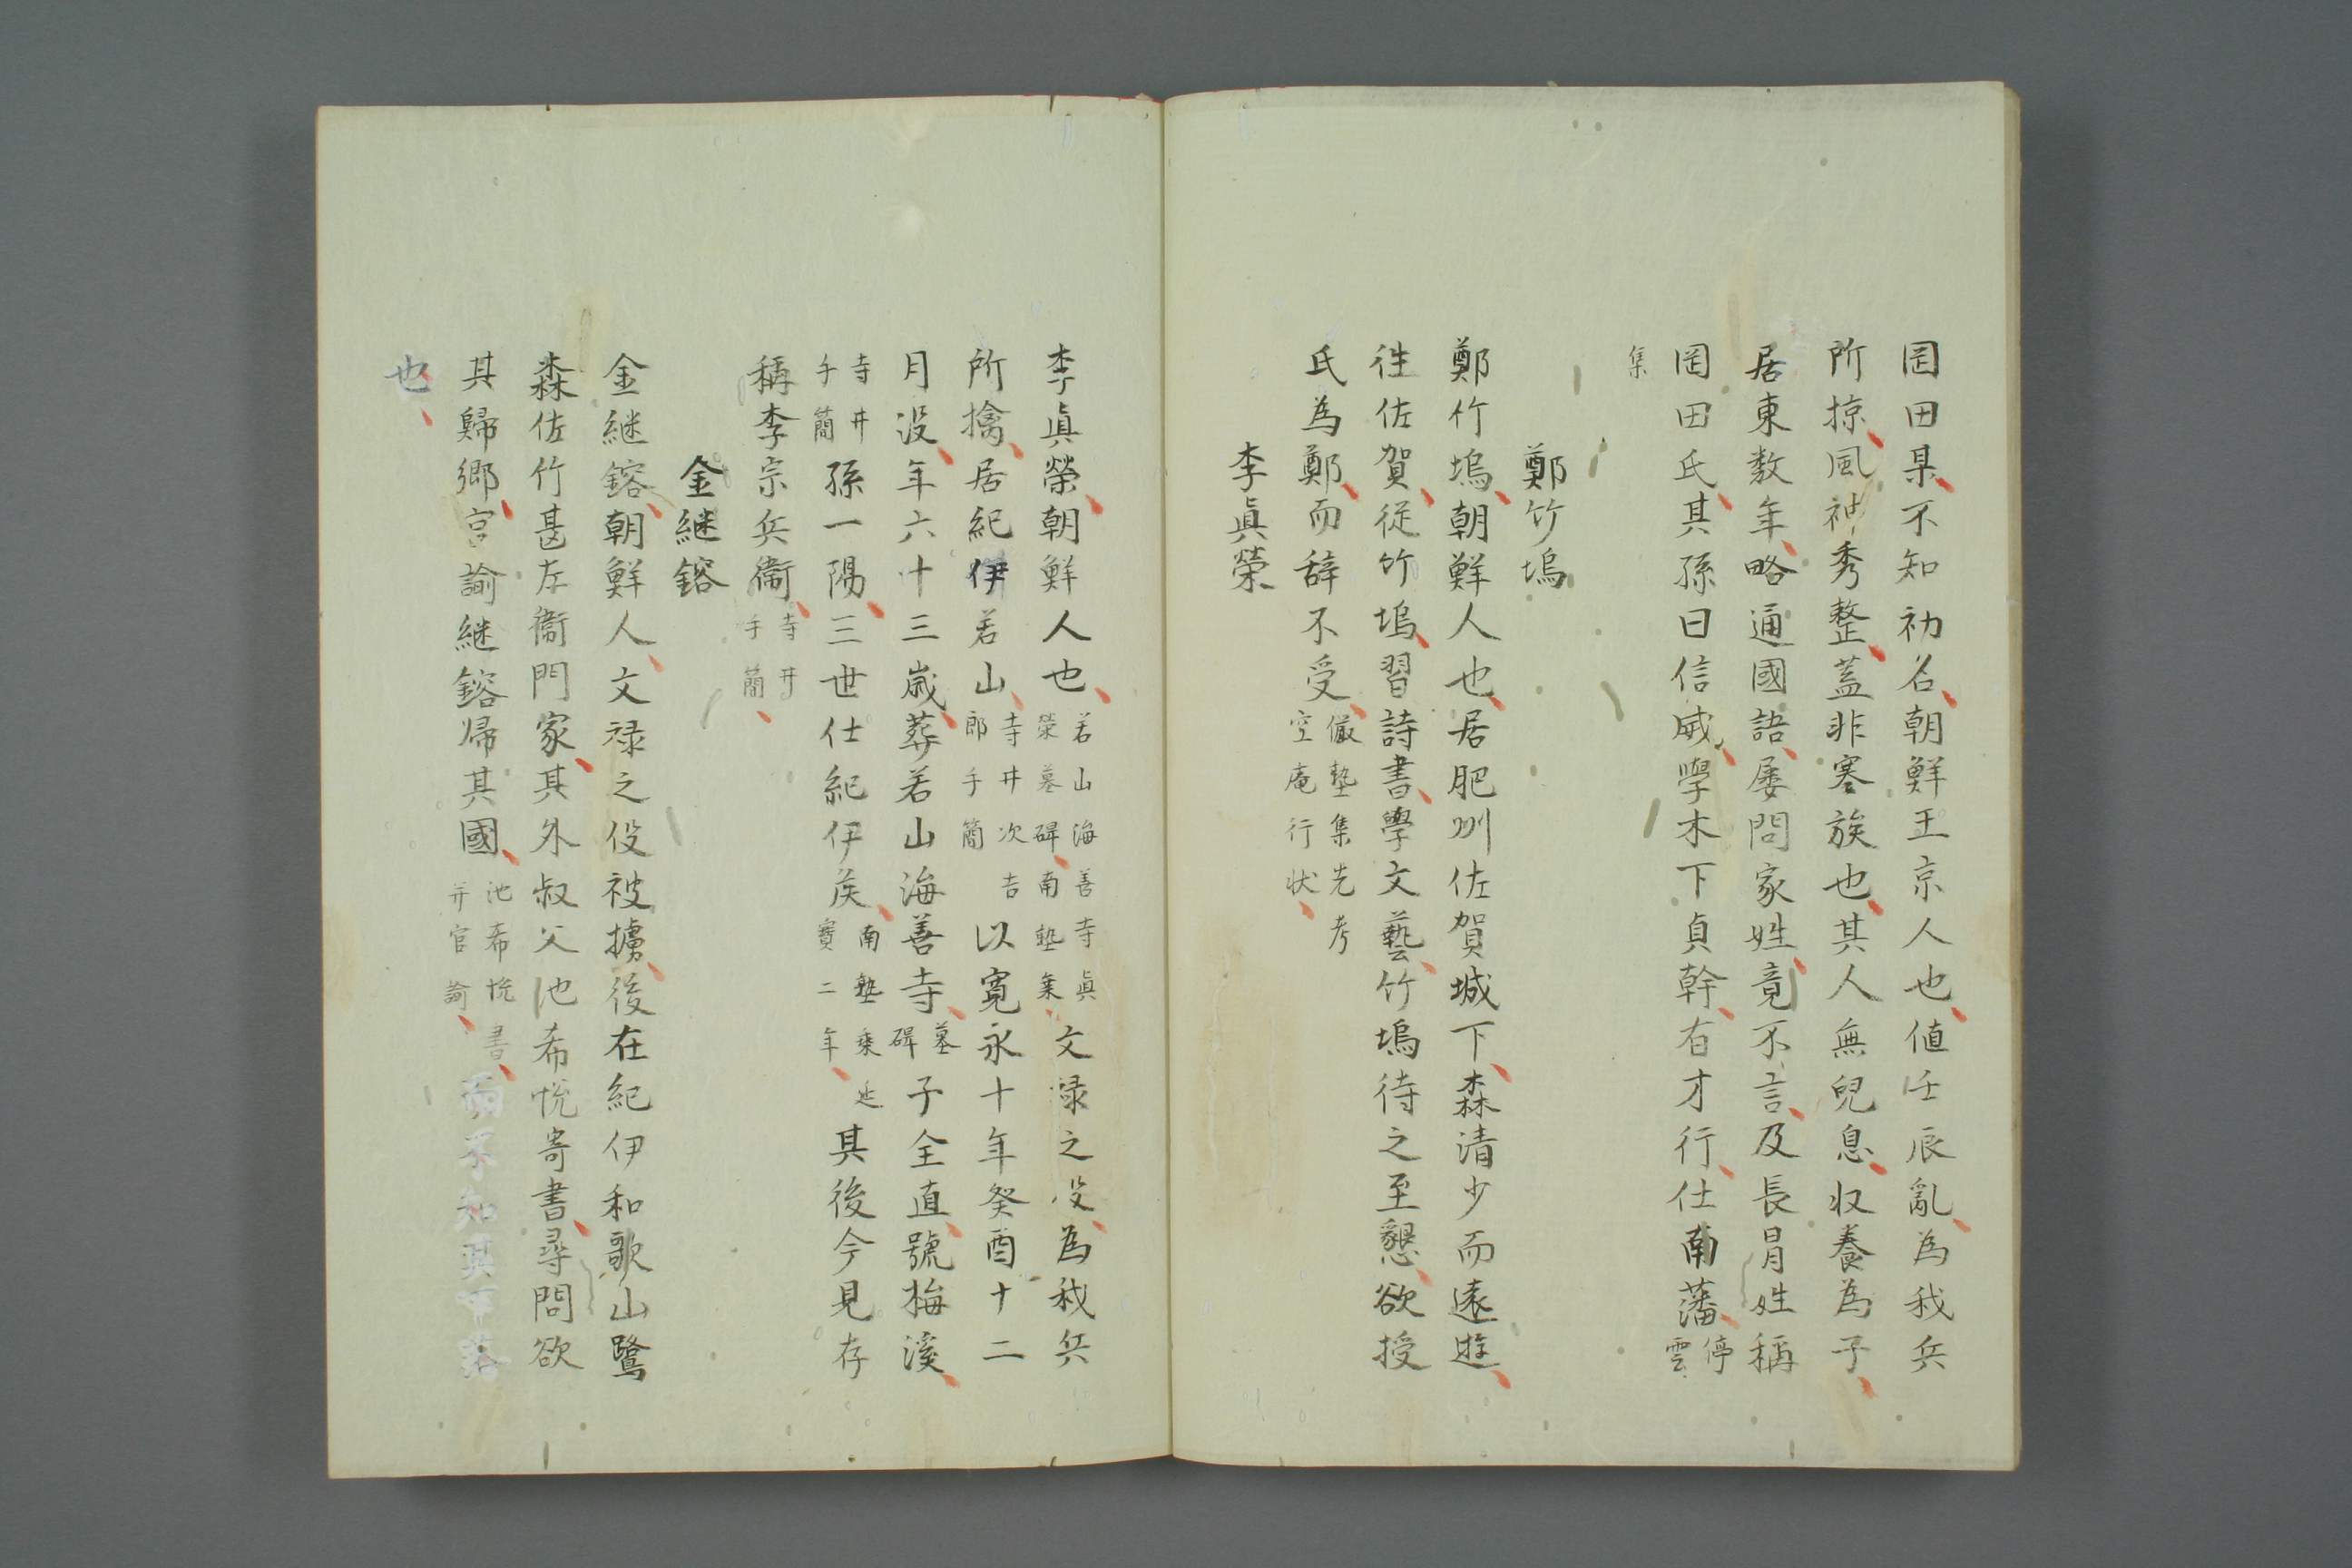 岡田某不知初名朝鮮王京人也値壬辰亂為我兵
所掠風神秀整蓋非寒族也其人無兒息収養為子
居東數年略通國語屡問家姓竟不言及長冐姓稱
岡田氏其孫曰信威學木下貞幹有才行仕南藩停
雲
集
鄭竹塢
鄭竹塢朝鮮人也居肥州佐賀城下森清少而遠遊
徃佐賀従竹塢習詩書學文藝竹塢待之至懇欲授
氏為鄭而辞不受儼塾集先考
空庵行状
李眞榮
李眞榮朝鮮人也若山海善寺眞
榮墓碑南塾乗文禄之役為我兵
所擒居紀伊若山寺井次吉
郎手簡以寛永十年癸酉十二
月没年六十三歳葬若山海善寺墓
碑子全直號梅溪
寺井
手簡孫一陽三世仕紀伊矦南塾乗延
寶二年其後今見存
稱李宗兵衞寺井
手簡
金継鎔
金継鎔朝鮮人文禄之役被擄後在紀伊和歌山鷺
森佐竹甚左衞門家其外叔父池希悦寄書尋問欲
其歸郷官諭継鎔帰其國池希悦書
并官諭而不知其下落
也